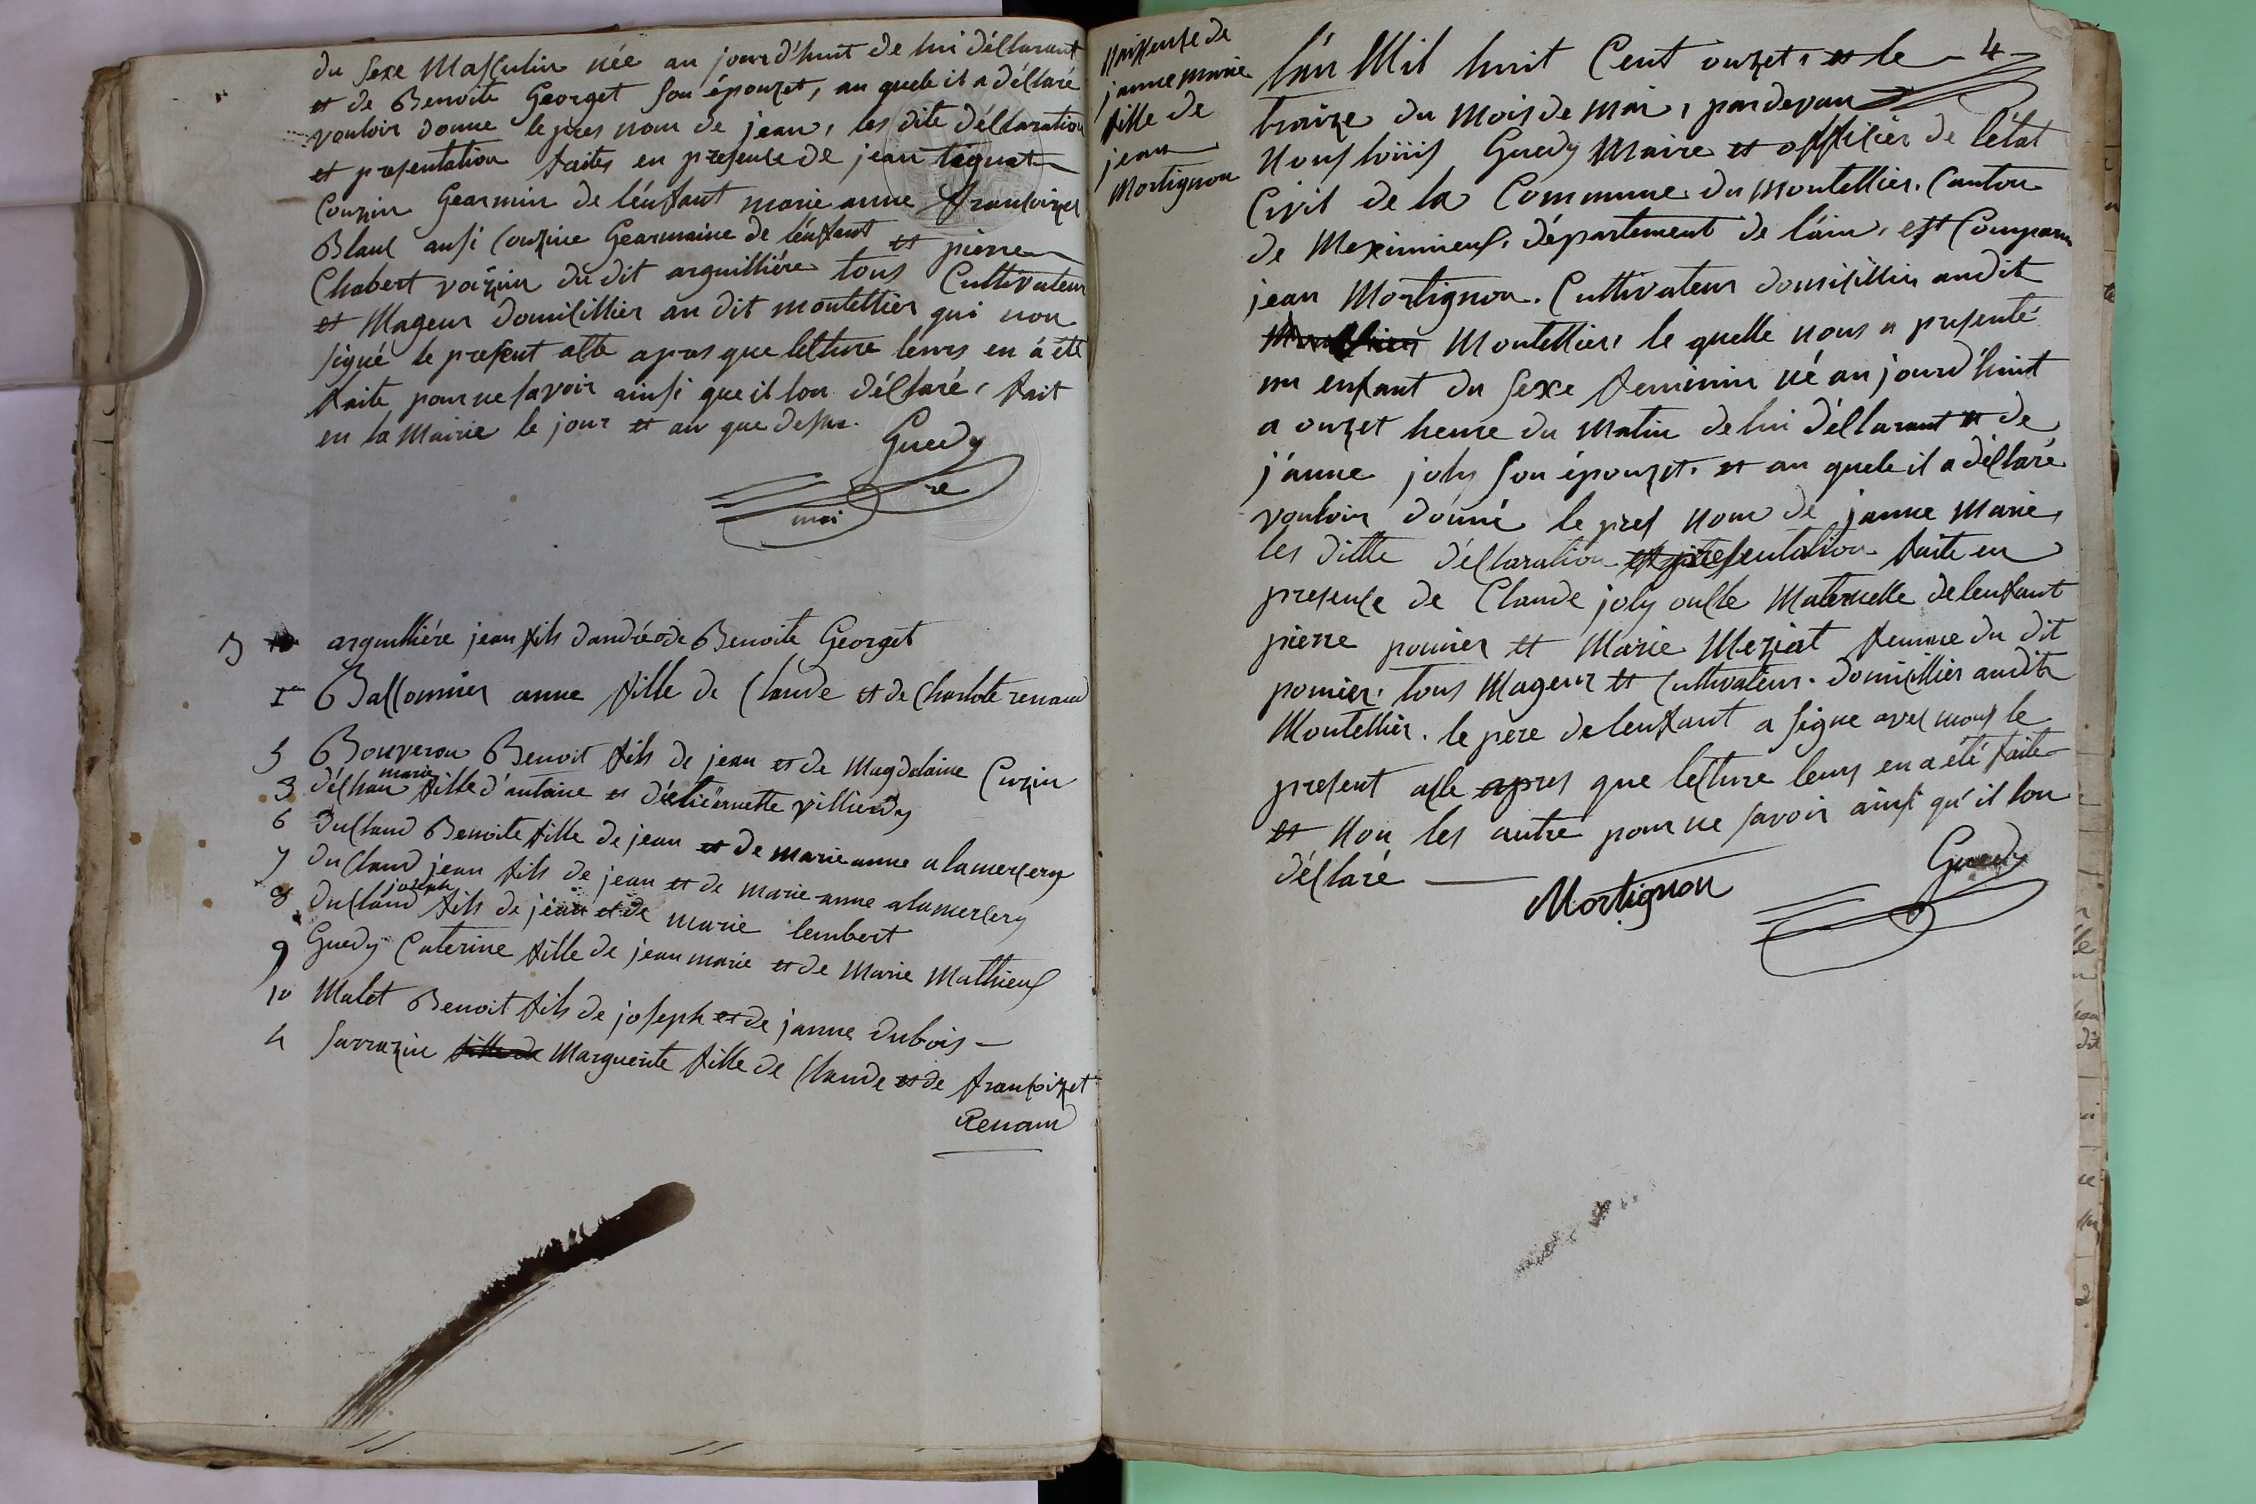 du sexe Masculin née au jourd'huit de lui déclarant
et de Benoite Georget son épouzet, au quele il a déclaré
vouloir donne le pres nom de jean, les dite déclaration
et presentation faites en presence de jean
Couzin Gearmin de l'énfant marie anne francoizet
Blanc ausi Couzine Gearmaine de l'énfant et pierre
Chabert voizin du dit arguilliére tous Cultivateur
et Mageur domicillier au dit montellier qui non
signé le present acte apres que lecture leurs en á été
faite pour ne savoir ainsi que il lon déclaré, fait
en la Mairie le jour et an que desus.
Guedy
mai re
arguilliére jean fils dandré et de Benoite Georget
1er Ballonnier anne fille de Claude et de Charlote renaud
5 Bouveron Benoit fils de jean et de Magdelaine Cuzin
3 déchan marie fille d'antoine et d'étiënnette villiendy
6 duclaud Benoite fille de jean et de marie anne alamercery
7 duclaud jean fils de jean et de marie anne alamercery
8 duclaud joseph fils de jean et de marie lembert
9 Guedy Caterine fille de jean marie et de Marie Mathieux
10 Malet Benoit fils de joseph et de janne dubois
4 Sarrazin fille de Marguerite fille de Claude et de francoizet
Renaud
Naissense de
janne marie
fille de
jean
Mortignon
4
l'án Mil huit Cent onzet, et le
traize du Mois de Mai, pardevan
Nous loüis Guedy Maire et officier de l'état
Civil de la Commune du Montellier. Canton
de Meximieux, département de l'ain, est Comparu
jean Mortignon. Cultivateur domicillier audit
Montellier le quelle nous a presenté
un enfant du sexe feminin né au jourd'huit
a onzet heure du matin de lui déclarant et de
j'anne joly son épouzet, et au quele il a déclaré
vouloir donné le pres nom de janne Marie,
les ditte déclaration et presentation faite en
presense de Claude joly oncle Maternelle de lenfant
pierre pomier et Marie Meziat femme du dit
pomier, tous Mageur et Cultivateur. domicillier audit
Montellier. le pere de lenfant a signe avec nous le
present acte apres que lecture leurs en a été faite
et Non les autre pour ne savoir ainsi qu'il lon
déclaré
Mortignon
Guedy